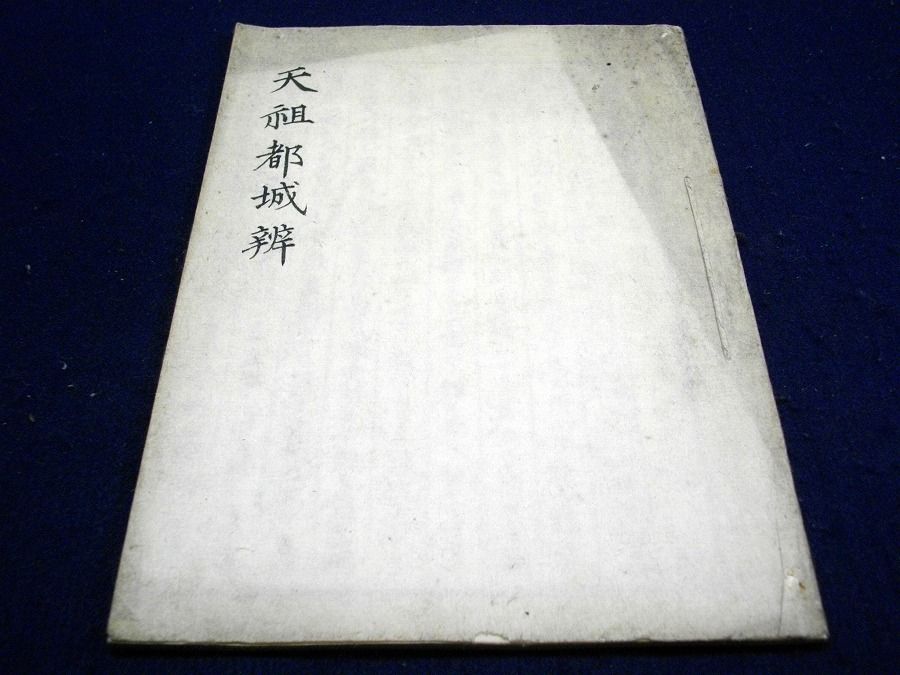 天祖都城辨